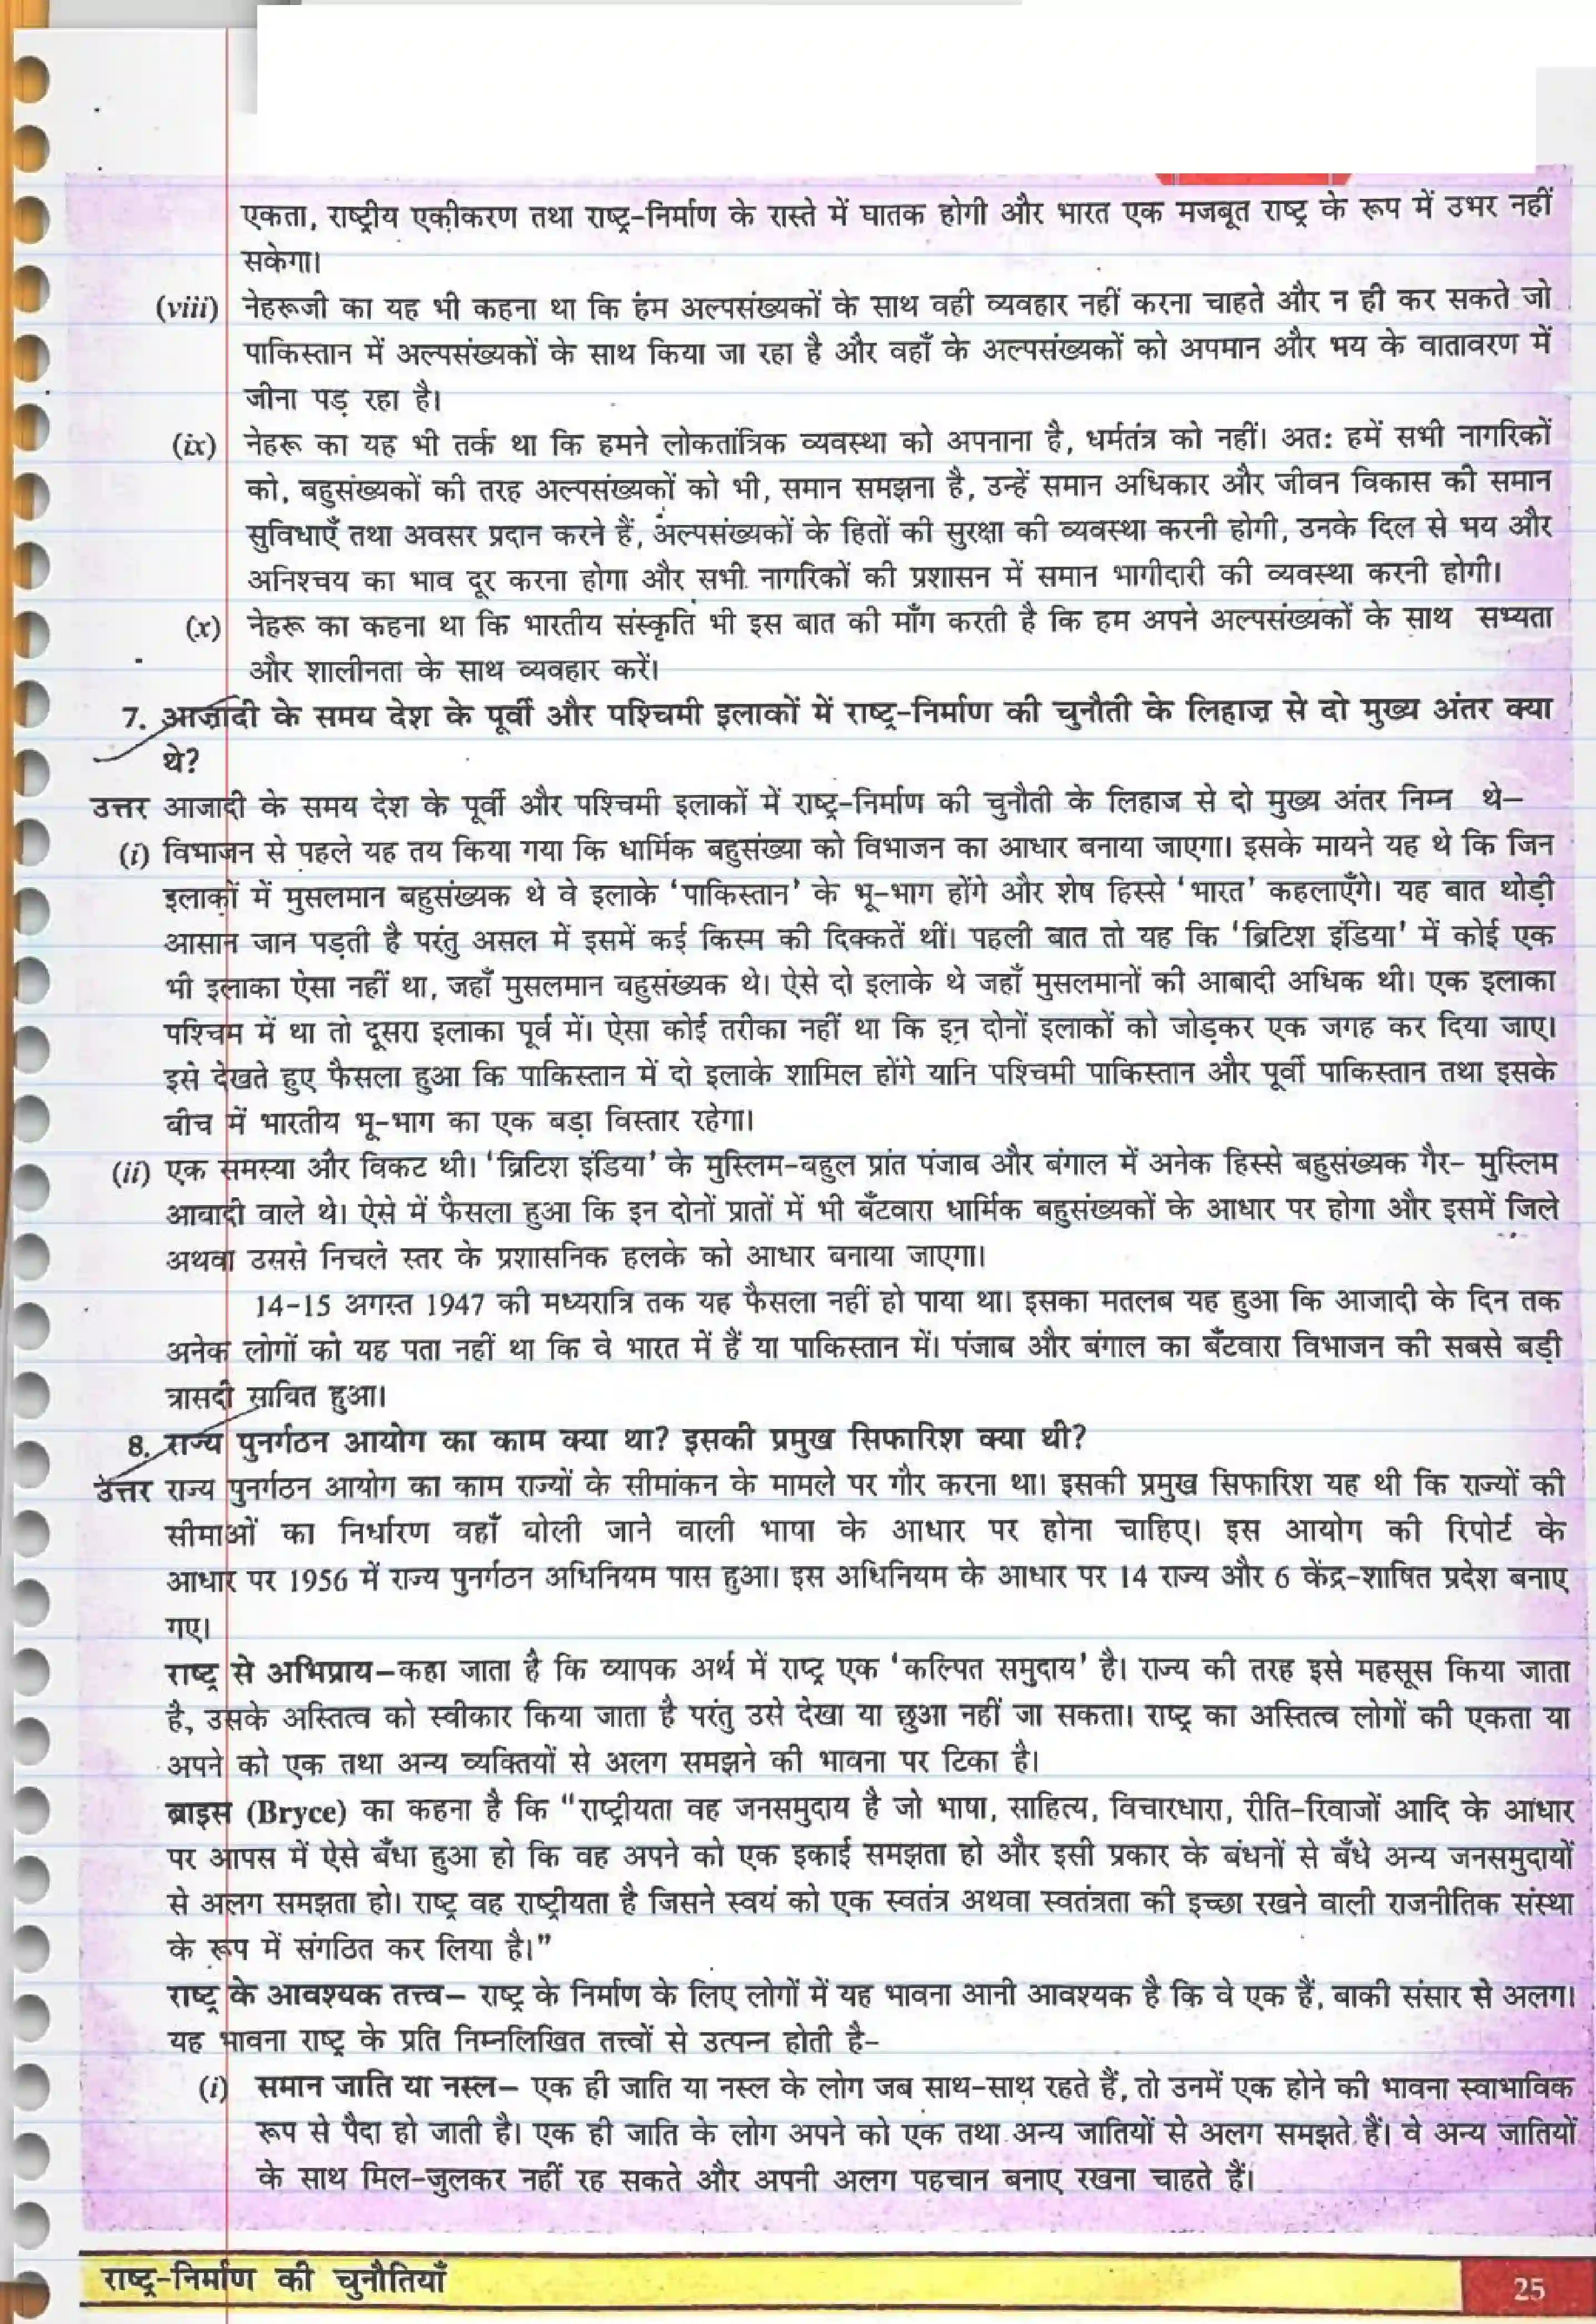 एकता, राष्ट्रीय एकीकरण तथा राष्ट्र-निर्माण के रास्ते में घातक होगी और भारत एक मजबूत राष्ट्र के रूप में उभर नहीं
सकेगा।
(viii) नेहरूजी का यह भी कहना था कि हंम अल्पसंख्यकों के साथ वही व्यवहार नहीं करना चाहते और न ही कर सकते जो
पाकिस्तान में अल्पसंख्यकों के साथ किया जा रहा है और वहाँ के अल्पसंख्यकों को अपमान और भय के वातावरण में
जीना पड़ रहा है।
(ix) नेहरू का यह भी तर्क था कि हमने लोकतांत्रिक व्यवस्था को अपनाना है, धर्मतंत्र को नहीं। अत: हमें सभी नागरिकों
को, बहुसंख्यकों की तरह अल्पसंख्यकों को भी, समान समझना है, उन्हें समान अधिकार और जीवन विकास की समान
सुविधाएँ तथा अवसर प्रदान करने हैं, अल्पसंख्यकों के हितों की सुरक्षा की व्यवस्था करनी होगी, उनके दिल से भय और
अनिश्चय का भाव दूर करना होगा और सभी नागरिकों की प्रशासन में समान भागीदारी की व्यवस्था करनी होगी।
(x) नेहरू का कहना था कि भारतीय संस्कृति भी इस बात की माँग करती है कि हम अपने अल्पसंख्यकों के साथ सभ्यता
और शालीनता के साथ व्यवहार करें।
7. आज़ादी के समय देश के पूर्वी और पश्चिमी इलाकों में राष्ट्र-निर्माण की चुनौती के लिहाज़ से दो मुख्य अंतर क्या
थे?
उत्तर आजादी के समय देश के पूर्वी और पश्चिमी इलाकों में राष्ट्र-निर्माण की चुनौती के लिहाज से दो मुख्य अंतर निम्न थे–
(i) विभाजन से पहले यह तय किया गया कि धार्मिक बहुसंख्या को विभाजन का आधार बनाया जाएगा। इसके मायने यह थे कि जिन
इलाकों में मुसलमान बहुसंख्यक थे वे इलाके ‘पाकिस्तान’ के भू-भाग होंगे और शेष हिस्से ‘भारत’ कहलाएँगे। यह बात थोड़ी
आसान जान पड़ती है परंतु असल में इसमें कई किस्म की दिक्कतें थीं। पहली बात तो यह कि ‘ब्रिटिश इंडिया’ में कोई एक
भी इलाका ऐसा नहीं था, जहाँ मुसलमान बहुसंख्यक थे। ऐसे दो इलाके थे जहाँ मुसलमानों की आबादी अधिक थी। एक इलाका
पश्चिम में था तो दूसरा इलाका पूर्व में। ऐसा कोई तरीका नहीं था कि इन दोनों इलाकों को जोड़कर एक जगह कर दिया जाए।
इसे देखते हुए फैसला हुआ कि पाकिस्तान में दो इलाके शामिल होंगे यानि पश्चिमी पाकिस्तान और पूर्वी पाकिस्तान तथा इसके
बीच में भारतीय भू-भाग का एक बड़ा विस्तार रहेगा।
(ii) एक समस्या और विकट थी। ‘ब्रिटिश इंडिया’ के मुस्लिम-बहुल प्रांत पंजाब और बंगाल में अनेक हिस्से बहुसंख्यक गैर- मुस्लिम
आबादी वाले थे। ऐसे में फैसला हुआ कि इन दोनों प्रातों में भी बँटवारा धार्मिक बहुसंख्यकों के आधार पर होगा और इसमें जिले
अथवा उससे निचले स्तर के प्रशासनिक हलके को आधार बनाया जाएगा।
14-15 अगस्त 1947 की मध्यरात्रि तक यह फैसला नहीं हो पाया था। इसका मतलब यह हुआ कि आजादी के दिन तक
अनेक लोगों को यह पता नहीं था कि वे भारत में हैं या पाकिस्तान में। पंजाब और बंगाल का बँटवारा विभाजन की सबसे बड़ी
त्रासदी साबित हुआ।
8. राज्य पुनर्गठन आयोग का काम क्या था? इसकी प्रमुख सिफारिश क्या थी?
उत्तर राज्य पुनर्गठन आयोग का काम राज्यों के सीमांकन के मामले पर गौर करना था। इसकी प्रमुख सिफारिश यह थी कि राज्यों की
सीमाओं का निर्धारण वहाँ बोली जाने वाली भाषा के आधार पर होना चाहिए। इस आयोग की रिपोर्ट के
आधार पर 1956 में राज्य पुनर्गठन अधिनियम पास हुआ। इस अधिनियम के आधार पर 14 राज्य और 6 केंद्र-शाषित प्रदेश बनाए
गए।
राष्ट्र से अभिप्राय–कहा जाता है कि व्यापक अर्थ में राष्ट्र एक ‘कल्पित समुदाय’ है। राज्य की तरह इसे महसूस किया जाता
है, उसके अस्तित्व को स्वीकार किया जाता है परंतु उसे देखा या छुआ नहीं जा सकता। राष्ट्र का अस्तित्व लोगों की एकता या
अपने को एक तथा अन्य व्यक्तियों से अलग समझने की भावना पर टिका है।
ब्राइस (Bryce) का कहना है कि “राष्ट्रीयता वह जनसमुदाय है जो भाषा, साहित्य, विचारधारा, रीति-रिवाजों आदि के आधार
पर आपस में ऐसे बँधा हुआ हो कि वह अपने को एक इकाई समझता हो और इसी प्रकार के बंधनों से बँधे अन्य जनसमुदायों
से अलग समझता हो। राष्ट्र वह राष्ट्रीयता है जिसने स्वयं को एक स्वतंत्र अथवा स्वतंत्रता की इच्छा रखने वाली राजनीतिक संस्था
के रूप में संगठित कर लिया है।”
राष्ट्र के आवश्यक तत्त्व– राष्ट्र के निर्माण के लिए लोगों में यह भावना आनी आवश्यक है कि वे एक हैं, बाकी संसार से अलग।
यह भावना राष्ट्र के प्रति निम्नलिखित तत्त्वों से उत्पन्न होती है-
(i) समान जाति या नस्ल– एक ही जाति या नस्ल के लोग जब साथ-साथ रहते हैं, तो उनमें एक होने की भावना स्वाभाविक
रूप से पैदा हो जाती है। एक ही जाति के लोग अपने को एक तथा अन्य जातियों से अलग समझते हैं। वे अन्य जातियों
के साथ मिल-जुलकर नहीं रह सकते और अपनी अलग पहचान बनाए रखना चाहते हैं।
राष्ट्र-निर्माण की चुनौतियाँ
25